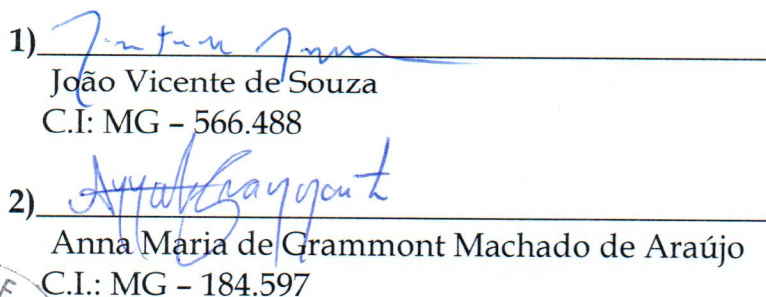 1)
João Vicente de Souza
C.I: MG – 566.488
2)
Anna Maria de Grammont Machado de Araújo
C.I.: MG – 184.597